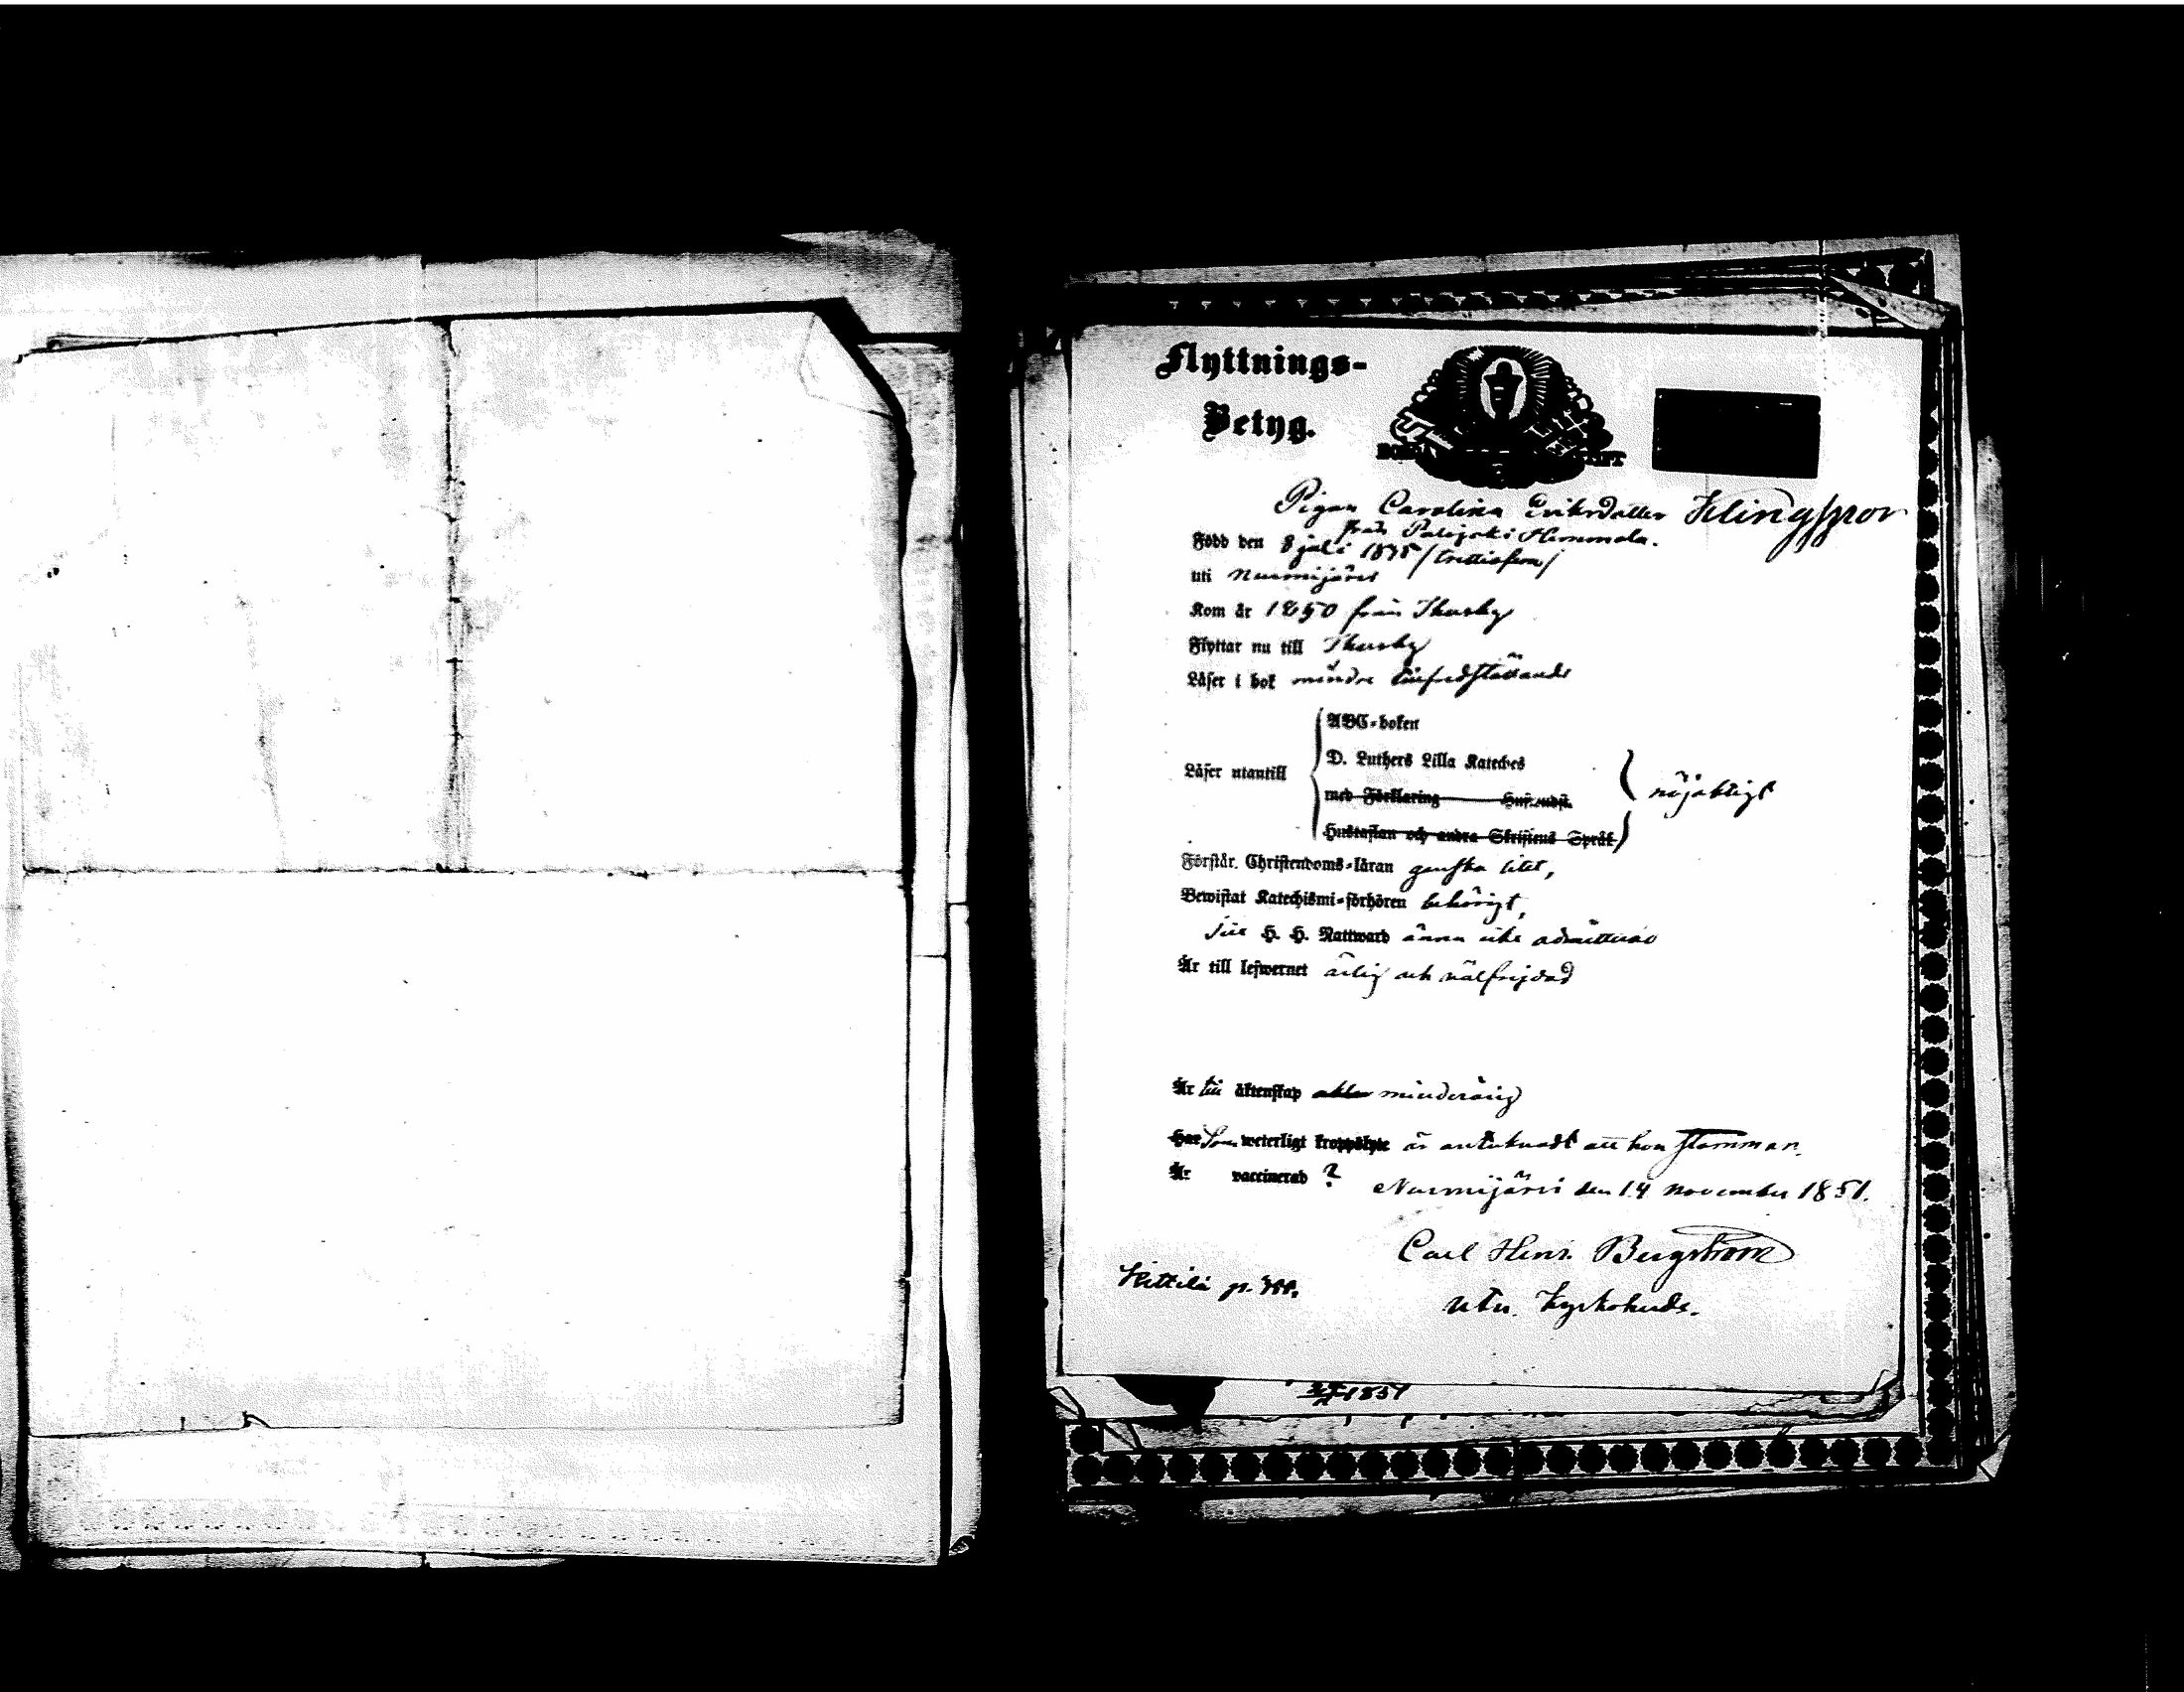 Flyttnings-
Betyg.
Pigan Carolina Eriksdotter Klingspor
från Palojoki Himmola.
Född den 8 juli 1835
uti Nurmijärvi
Kom år 1850 från Thusby
Flyttar nu till Thusby
Läser i bok mindre tillfredställande
ABC-boken
D. Luthers Lilla Kateches
Läser utantill
med Förklaring
nöjaktigt
Hustaflan och andra Skriftens Språk
Förstår Christendoms-läran ganska litet,
Bewistat Katechismi-förhören behörigt,
till H. H. Nattward ännu icke admitterad
Är till lefwernet ärlig och välfrejdad
Är till äktenskap minderårig
Har weterligt kroppslyte är antecknadt att hon stammar.
Är vaccinerad ?
Nurmijärvi den 14 November 1851.
Carl Henr. Bergström
Kittilä p.
Kyrkoherde.
1851